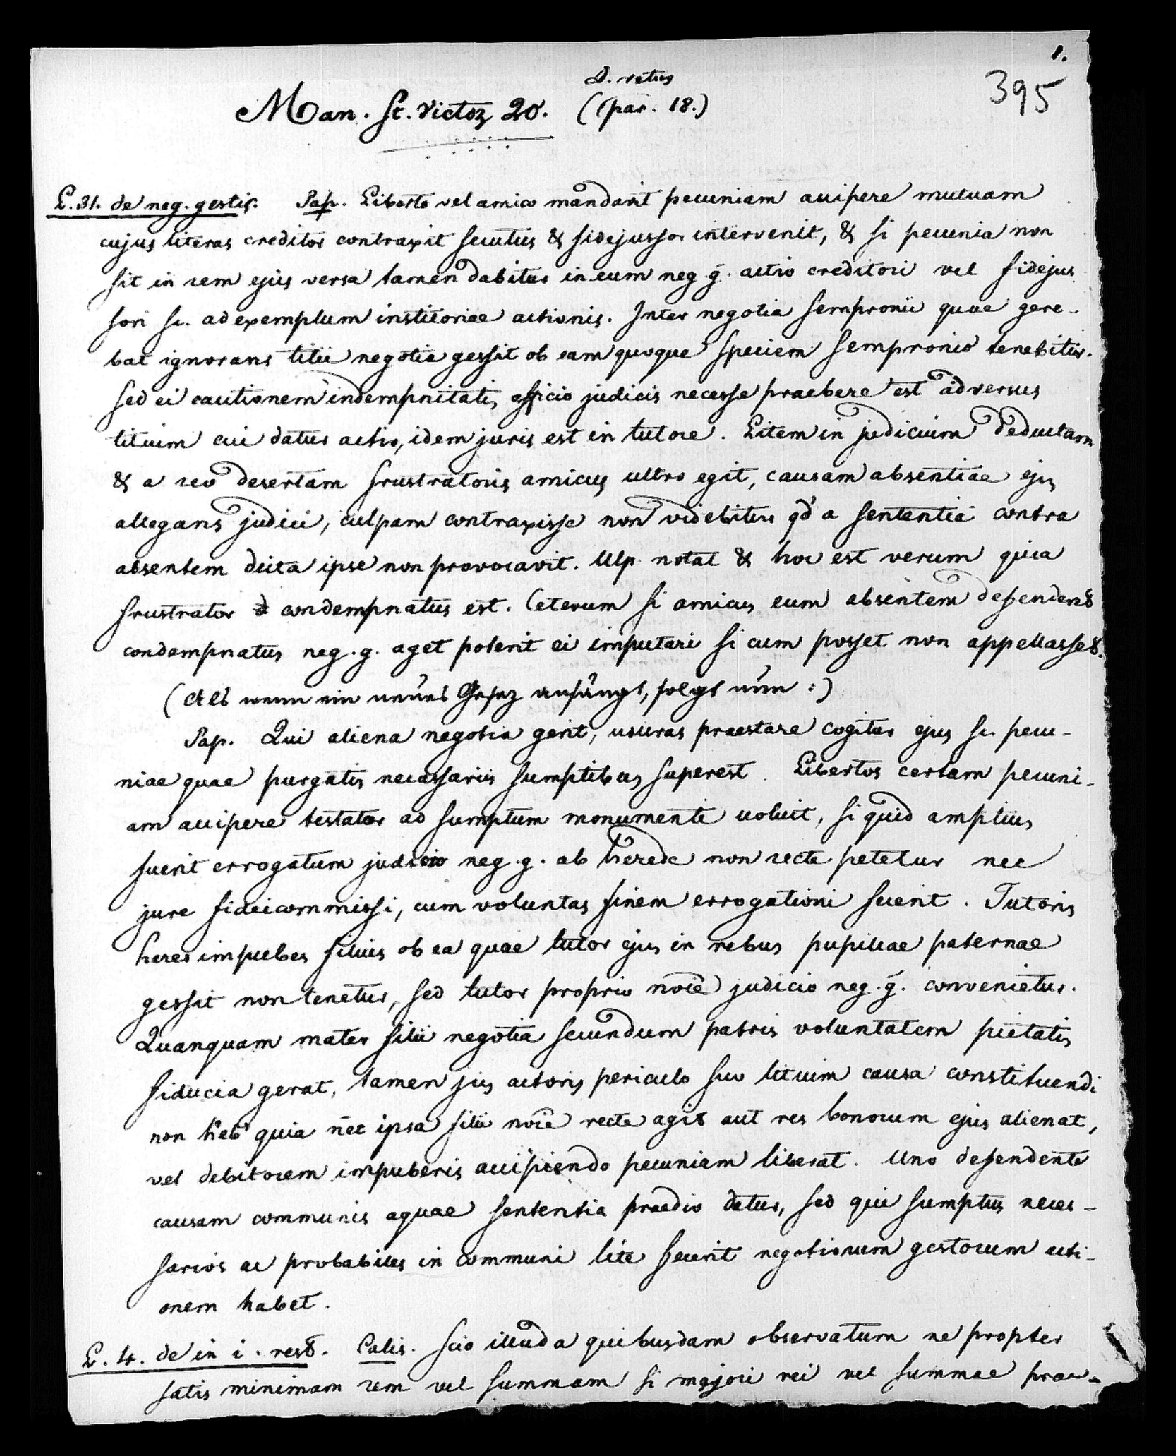 1.
395
D. vetus
Man. St. Victor 20. (par. 18.)
L. 31. de neg. gestis. Pap. Liberto vel amico mandavit pecuniam accipere mutuam
cujus literas creditor contraxit secutus & fidejussor intervenit, & si pecunia non
sit in rem ejus versa tamen dabitur in eum neg g. actio creditori vel fidejus
sori sc. ad exemplum institoriae actionis. Inter negotia Sempronii quae gere-
bat ignorans titii negotia gessit ob eam quoque speciem Sempronio tenebitur.
Sed ei cautionem indempnitatis officio judicis necesse praebere est adversus
titium cui datur actio, idem juris est in tutore. Litem in judicium deductam
& a reo desertam frustratoris amicus ultro egit, causam absentiae ejus
allegans judici, culpam contraxisse non videbitur qd a sententia contra
absentem dicta ipse non provocavit. Ulp. notat & hoc est verum quia
frustrator condempnatus est. Ceterum si amicus eum absentem defenderet
condempnatus neg. g. aget poterit ei imputari si cum posset non appellasset.
(Als wenn ein neues Gesez anfängt, folgt nun :)
Pap. Qui aliena negotia gerit, usuras praestare cogitur ejus sc. pecu-
niae quae purgatis necessariis sumptibus superest. Libertos certam pecuni-
am accipere testator ad sumptum monumenti voluit, si quid amplius
fuerit errogatum judicio neg. g. ab herede non recte petetur nec
jure fideicommissi, cum voluntas finem errogationi fecerit. Tutoris
heres impubes filius ob ea quae tutor ejus in rebus pupillae paternae
gessit non tenetur, sed tutor proprio noie judicio neg. g. convenietur.
Quanquam mater filii negotia secundum patris voluntatem pietatis
fiducia gerat, tamen jus actoris periculo suo litium causa constituendi
non heb quia nec ipsa filii noie recte agit aut res bonorum ejus alienat,
vel debitorem impuberis accipiendo pecuniam liberat. Uno defendente
causam communis aquae sententia praedio datur, sed qui sumptus neces-
sarios ac probabiles in communi lite fecerit negotiorum gestorum acti-
onem habet.
L. 4. de in i. rest. Calis. Scio illud a quibusdam observatum ne propter
satis minimam rem vel summam si majori rei vel summae prae-